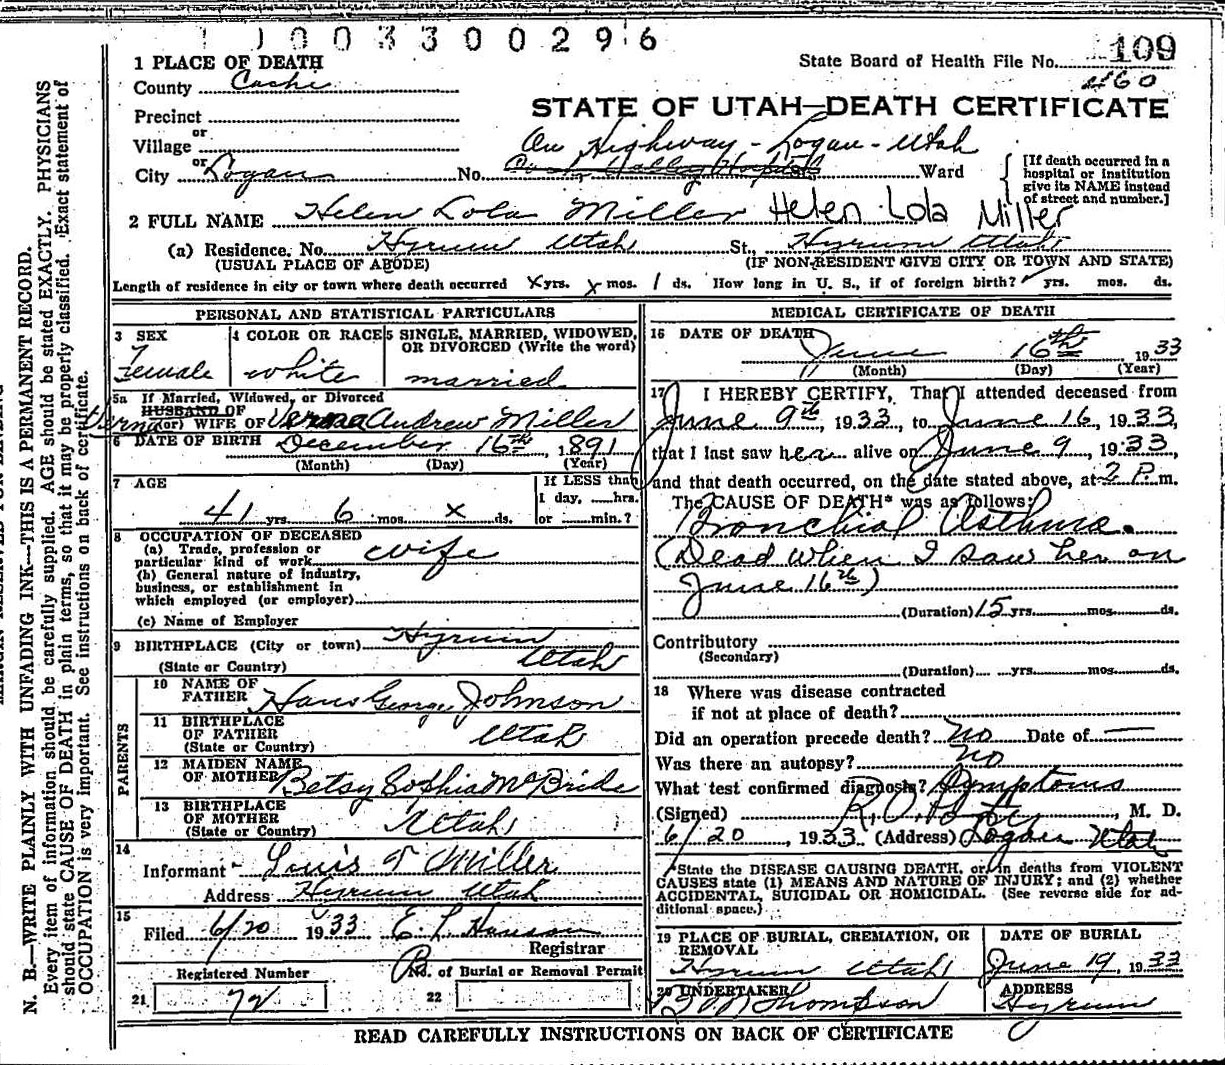 1 0 0 3 3 0 0 2 9 6
1 PLACE OF DEATH
State Board of Health File No. 109
County Cache
460
STATE OF UTAH—DEATH CERTIFICATE
Precinct
or
Village
On Highway - Logan - Utah
or
City Logan No. Ward
[If death occurred in a hospital or institution give its NAME instead of street and number.]
2 FULL NAME Helen Lola Miller Helen Lola Miller
(a) Residence. No. Hyrum Utah St. Hyrum Utah
(USUAL PLACE OF ABODE) (IF NON-RESIDENT GIVE CITY OR TOWN AND STATE)
Length of residence in city or town where death occurred x yrs. x mos. 1 ds. How long in U. S., if of foreign birth? yrs. mos. ds.
PERSONAL AND STATISTICAL PARTICULARS
3 SEX 4 COLOR OR RACE 5 SINGLE, MARRIED, WIDOWED, OR DIVORCED (Write the word)
Female white married
5a If Married, Widowed, or Divorced
HUSBAND OF
(or) WIFE OF Verna Andrew Miller
6 DATE OF BIRTH December 16th, 1891
(Month) (Day) (Year)
7 AGE
If LESS than 1 day, hrs. or min.?
41 yrs. 6 mos. x ds.
8 OCCUPATION OF DECEASED
(a) Trade, profession or particular kind of work wife
(b) General nature of industry, business, or establishment in which employed (or employer)
(c) Name of Employer
9 BIRTHPLACE (City or town) Hyrum
(State or Country) Utah
PARENTS
10 NAME OF FATHER Hans George Johnson
11 BIRTHPLACE OF FATHER (State or Country) Utah
12 MAIDEN NAME OF MOTHER Betsy Sophia McBride
13 BIRTHPLACE OF MOTHER (State or Country) Utah
14
Informant Louis T Miller
Address Hyrum Utah
15
Filed 6/20 1933 E L Hanson
Registrar
Registered Number No. of Burial or Removal Permit
21 72 22
MEDICAL CERTIFICATE OF DEATH
16 DATE OF DEATH
June 16th 1933
(Month) (Day) (Year)
17 I HEREBY CERTIFY, That I attended deceased from
June 9th, 1933, to June 16, 1933,
that I last saw her alive on June 9, 1933,
and that death occurred, on the date stated above, at 2 P. m.
The CAUSE OF DEATH* was as follows:
Bronchial Asthma.
(Dead when I saw her on
June 16th)
(Duration) 15 yrs. mos. ds.
Contributory
(Secondary)
(Duration) yrs. mos. ds.
18 Where was disease contracted
if not at place of death?
Did an operation precede death? No Date of —
Was there an autopsy? No
What test confirmed diagnosis? Symptoms
(Signed) R. O. , M. D.
6/20, 1933 (Address) Logan Utah
*State the DISEASE CAUSING DEATH, or, in deaths from VIOLENT
CAUSES state (1) MEANS AND NATURE OF INJURY; and (2) whether
ACCIDENTAL, SUICIDAL OR HOMICIDAL. (See reverse side for additional space.)
19 PLACE OF BURIAL, CREMATION, OR REMOVAL DATE OF BURIAL
Hyrum Utah June 19, 1933
20 UNDERTAKER ADDRESS
Thompson Hyrum
READ CAREFULLY INSTRUCTIONS ON BACK OF CERTIFICATE
N. B.—WRITE PLAINLY WITH UNFADING INK—THIS IS A PERMANENT RECORD.
Every item of information should be carefully supplied. AGE should be stated EXACTLY. PHYSICIANS
should state CAUSE OF DEATH in plain terms, so that it may be properly classified. Exact statement of
OCCUPATION is very important. See instructions on back of certificate.